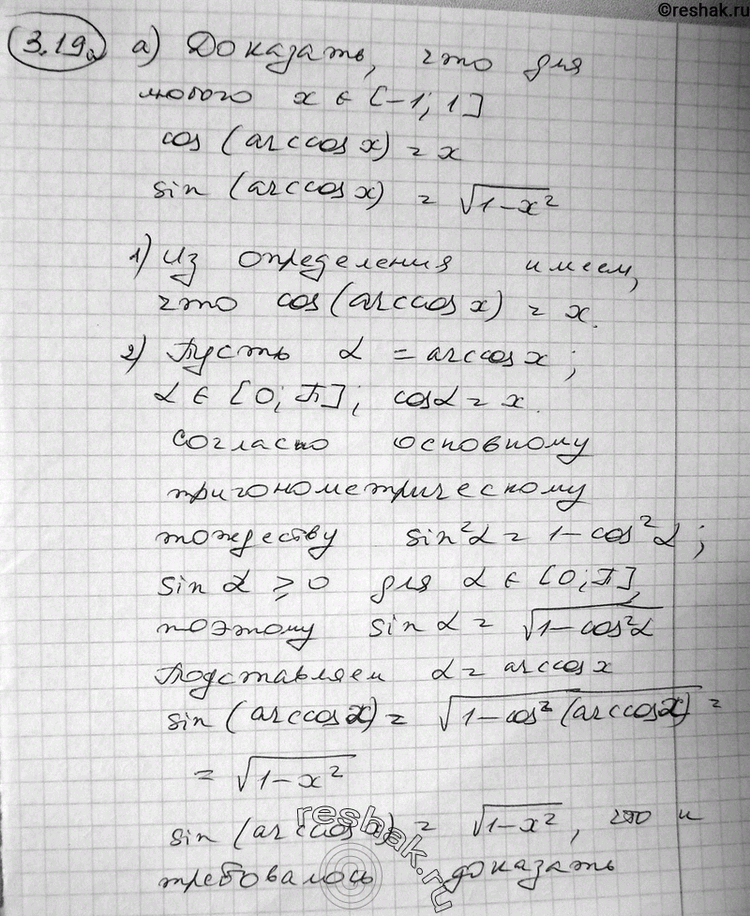 ©reshak.ru
3.19a а) Доказать, что для
любого x ∈ [-1; 1]
cos (arccos x) = x
sin (arccos x) = √1-x²
1) Из определения имеем,
что cos (arccos x) = x.
2) Пусть α = arccos x;
α ∈ [0; π]; cosα = x.
согласно основному
тригонометрическому
тождеству sin²α = 1-cos²α;
sin α ⩾ 0 для α ∈ [0; π],
поэтому sin α = √1-cos²α
Подставляем α = arccos x
sin (arccos x) = √1-cos² (arccos x) =
= √1-x²
sin (arccos x) = √1-x², что и
требовалось доказать
reshak.ru